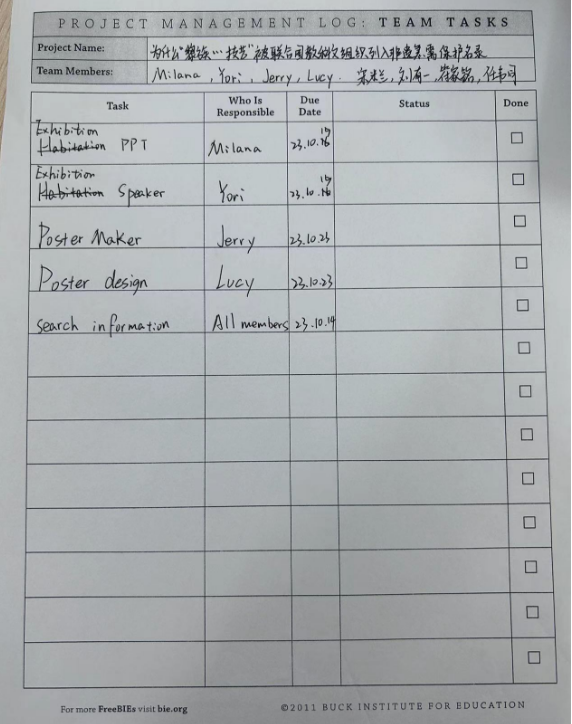 PROJECT MANAGEMENT LOG: TEAM TASKS
Project Name: 为什么"彝族…按营"被联合国教科文组织列入非遗急需保护名录
Team Members: Milana, Yori, Jerry, Lucy.
Task Who Is Responsible Due Date Status Done
Exhibition
Habitation PPT Milana 23.10.16 19
Exhibition
Habitation Speaker Yori 23.10.16 19
Poster Maker Jerry 23.10.23
Poster design Lucy 23.10.23
search information All members 23.10.14
For more FreeBIEs visit bie.org ©2011 BUCK INSTITUTE FOR EDUCATION